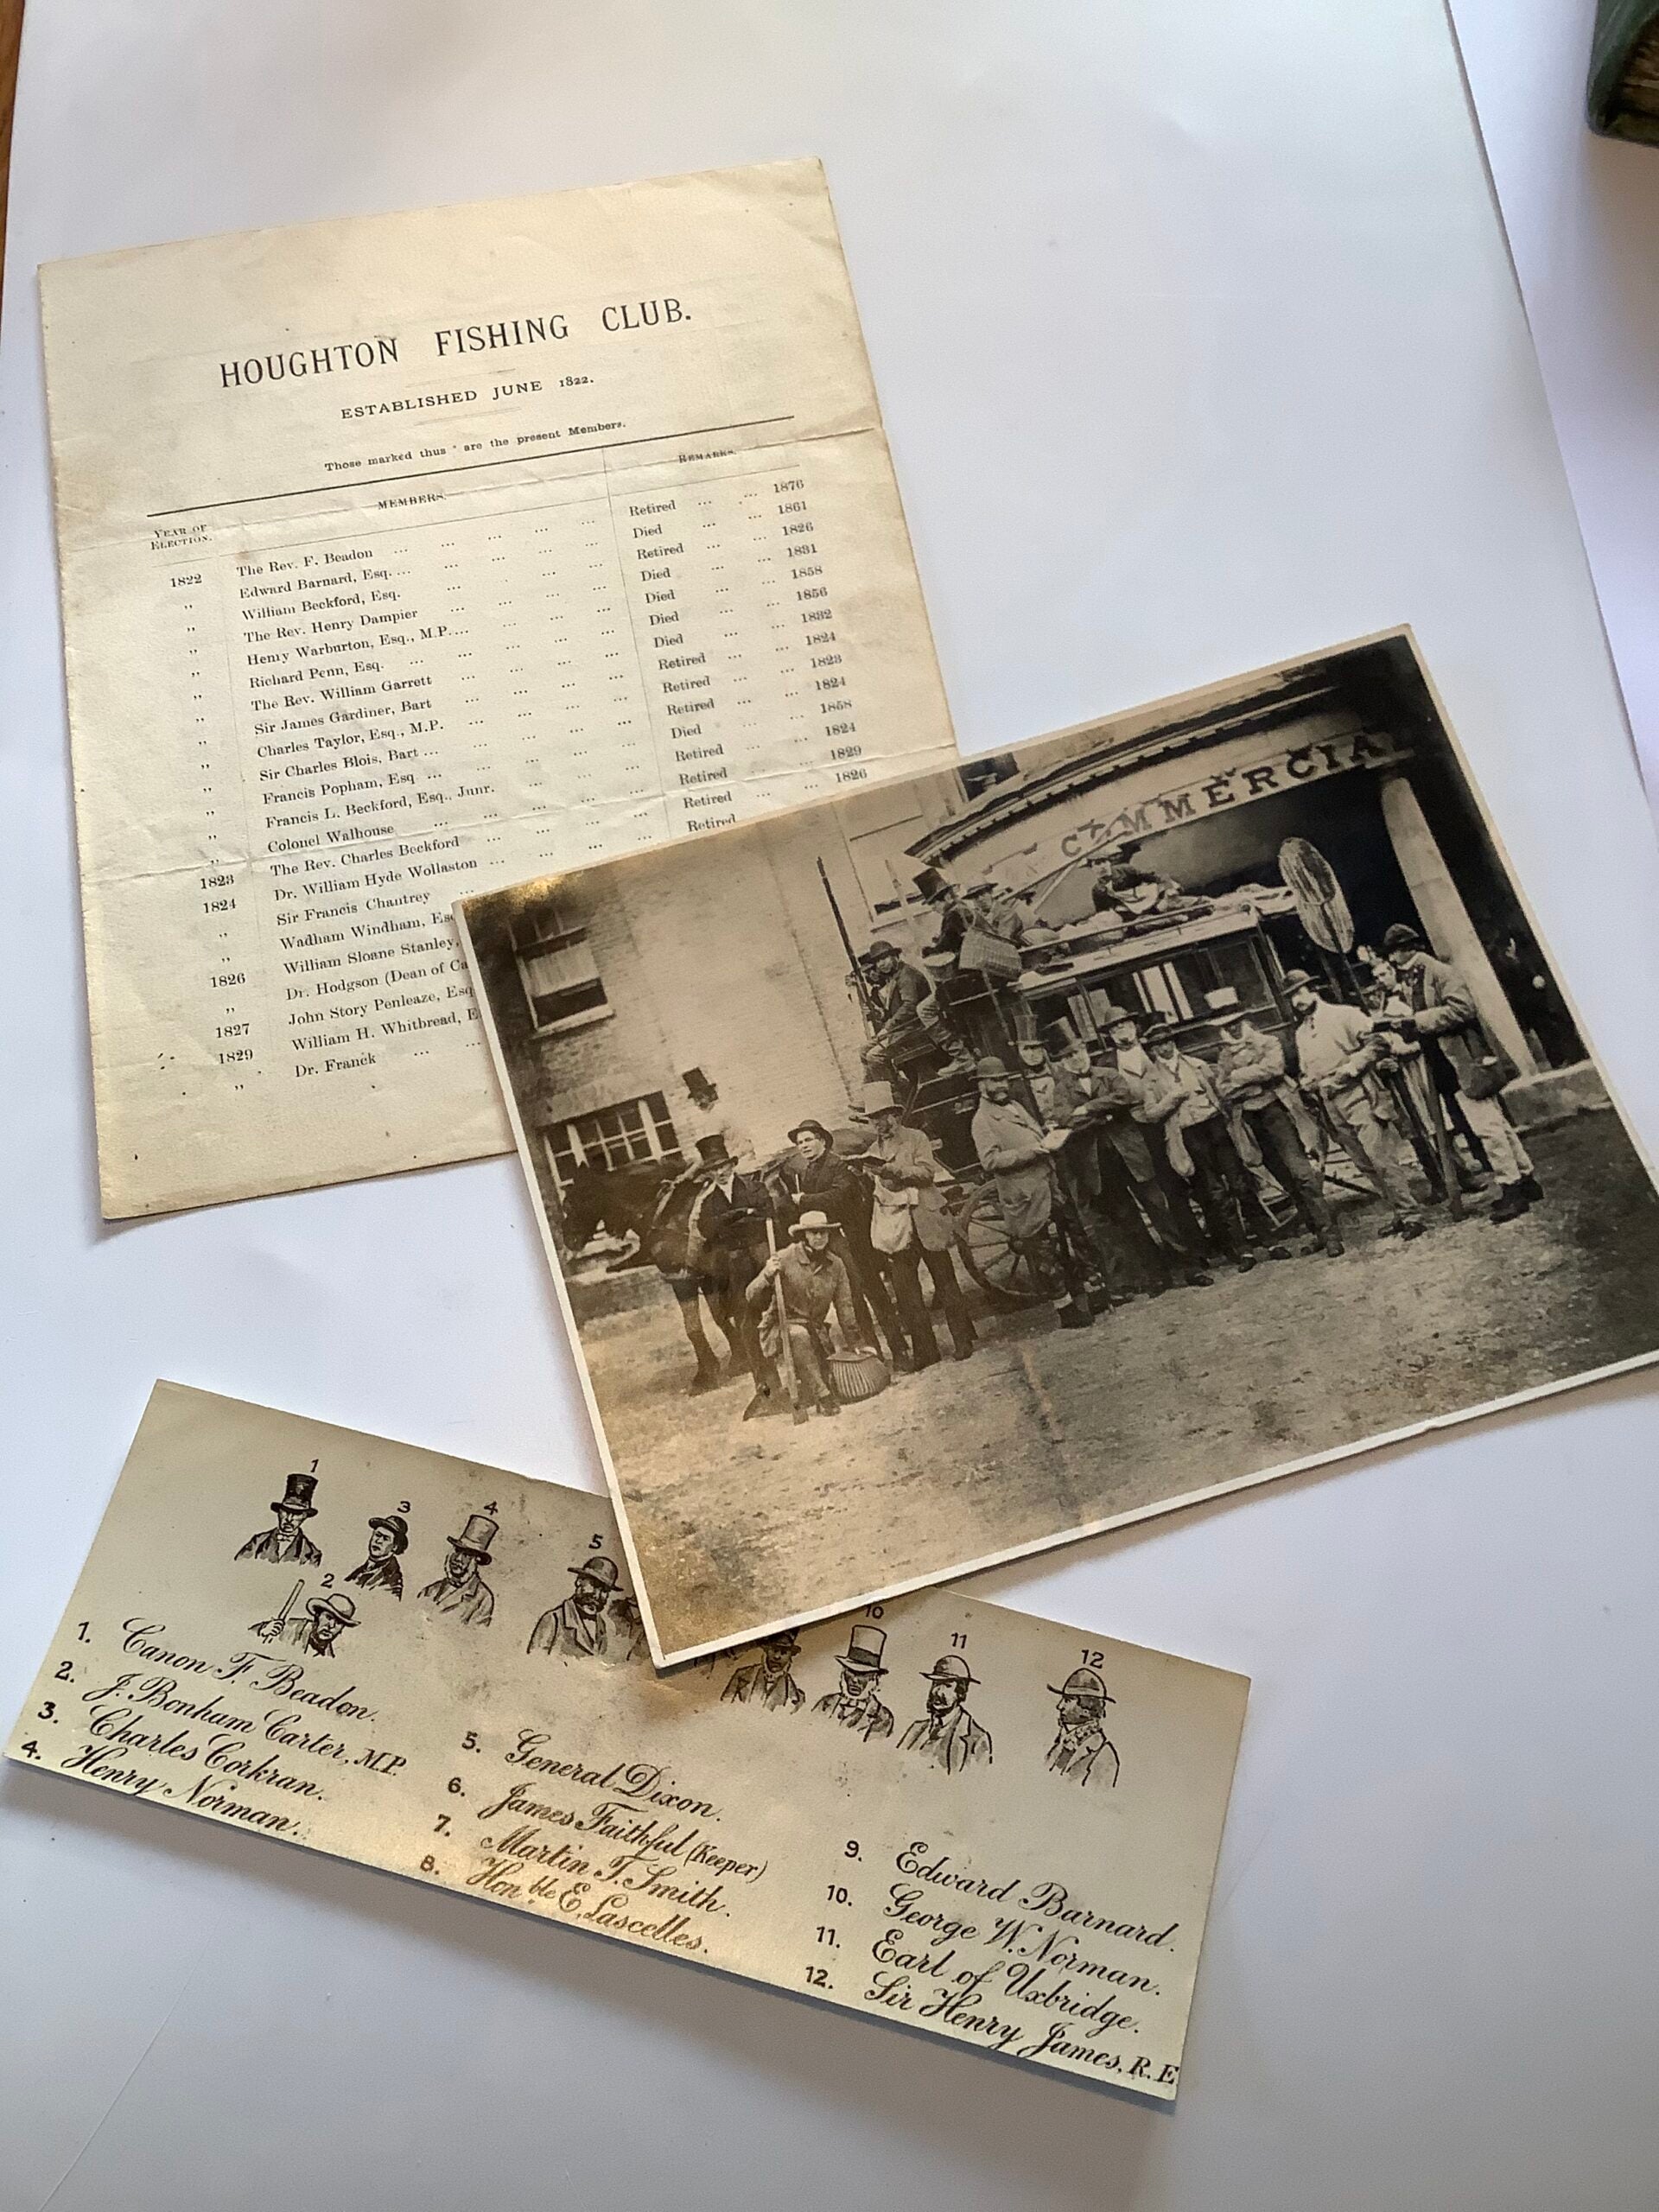 HOUGHTON FISHING CLUB.
ESTABLISHED JUNE 1822.
Those marked thus * are the present Members.
YEAR OF ELECTION. MEMBERS. REMARKS.
1822 The Rev. F. Beadon ... ... ... ... ... Retired ... ... 1876
,, Edward Barnard, Esq. ... ... ... ... ... Died ... ... 1861
,, William Beckford, Esq. ... ... ... ... Retired ... ... 1826
,, The Rev. Henry Dampier ... ... ... ... Died ... ... 1831
,, Henry Warburton, Esq., M.P. ... ... ... ... Died ... ... 1858
,, Richard Penn, Esq. ... ... ... ... ... Died ... ... 1856
,, The Rev. William Garrett ... ... ... ... Died ... ... 1832
,, Sir James Gardiner, Bart ... ... ... ... Retired ... ... 1824
,, Charles Taylor, Esq., M.P. ... ... ... ... Retired ... ... 1823
,, Sir Charles Blois, Bart ... ... ... ... ... Retired ... ... 1824
,, Francis Popham, Esq ... ... ... ... ... Died ... ... 1858
,, Francis L. Beckford, Esq., Junr. ... ... ... Retired ... ... 1824
,, Colonel Walhouse ... ... ... ... ... Retired ... ... 1829
1823 The Rev. Charles Beckford ... ... ... ... Retired ... ... 1826
1824 Dr. William Hyde Wollaston ... ... ... Retired
,, Sir Francis Chantrey ...
,, Wadham Windham, Esq
1826 William Sloane Stanley,
,, Dr. Hodgson (Dean of Ca
1827 John Story Penleaze, Esq
1829 William H. Whitbread, E
,, Dr. Franck ... ...
COMMERCIA
1
3
4
5
2
10
11
12
1. Canon F. Beadon.
2. J. Bonham Carter, M.P.
3. Charles Corkran.
4. Henry Norman.
5. General Dixon.
6. James Faithful (Keeper)
7. Martin T. Smith.
8. Hon ble E. Lascelles.
9. Edward Barnard.
10. George W. Norman.
11. Earl of Uxbridge.
12. Sir Henry James, R.E